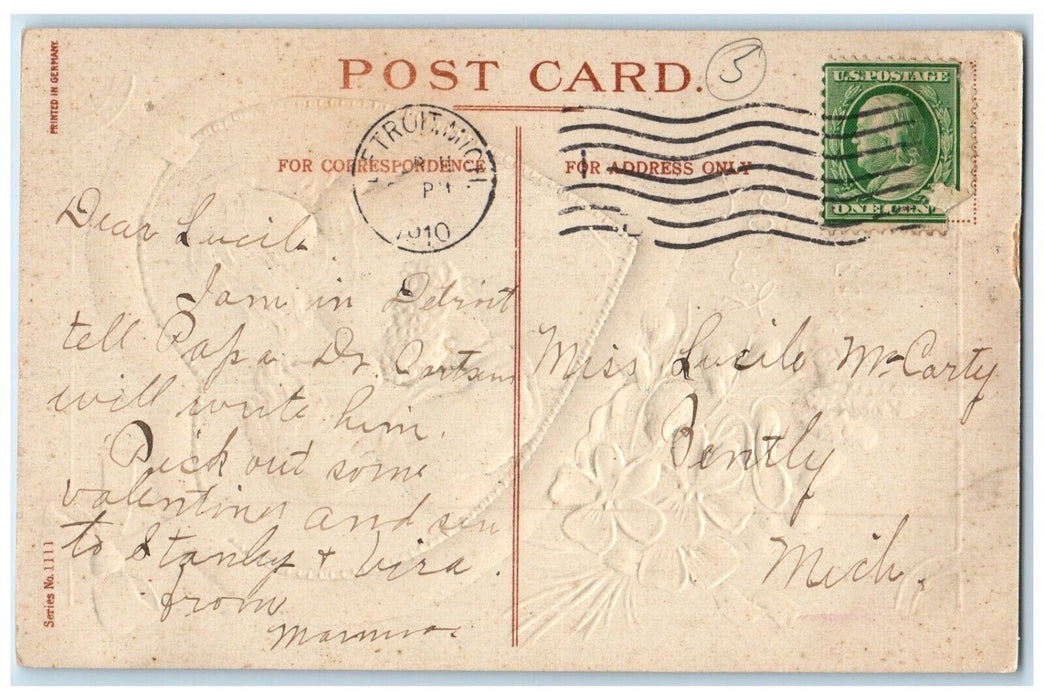 PRINTED IN GERMANY
POST CARD.
5
U.S. POSTAGE
ONE CENT
DETROIT, MICH.
PM
1910
FOR CORRESPONDENCE
FOR ADDRESS ONLY
Dear Lucile
I am in Detroit
tell Papa Dr.
will write him.
Pick out some
valentines and sen
to Stanley + Vira.
from
Mamma.
Miss Lucile McCarty
Bently
Mich.
Series No. 1111